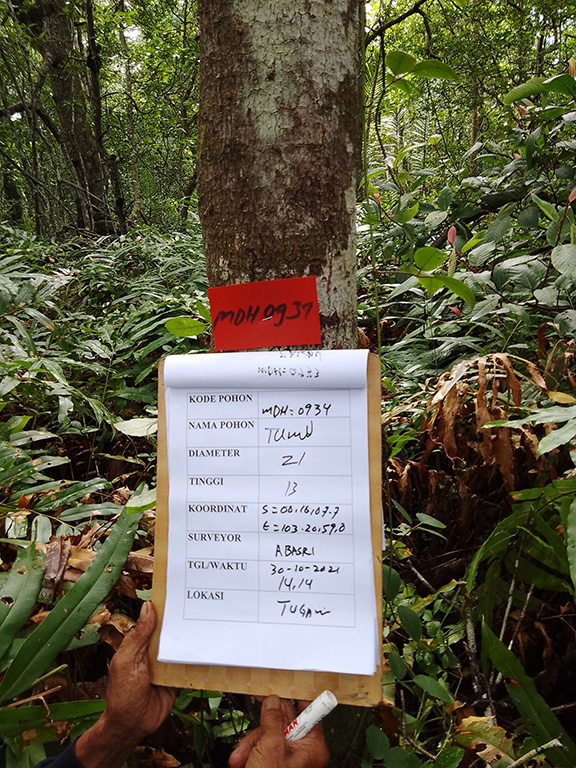 MDH0937
KODE POHON MDH=0934
NAMA POHON TUMU
DIAMETER 21
TINGGI 13
KOORDINAT S=00,16,07.7
E=103.20,59,0
SURVEYOR ABASRI
TGL/WAKTU 30-10-2021
14,14
LOKASI